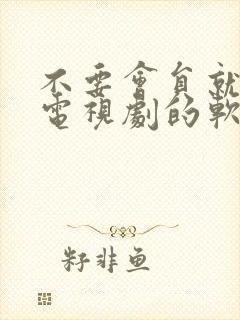 不要會員就
電視劇的軟
籽非鱼